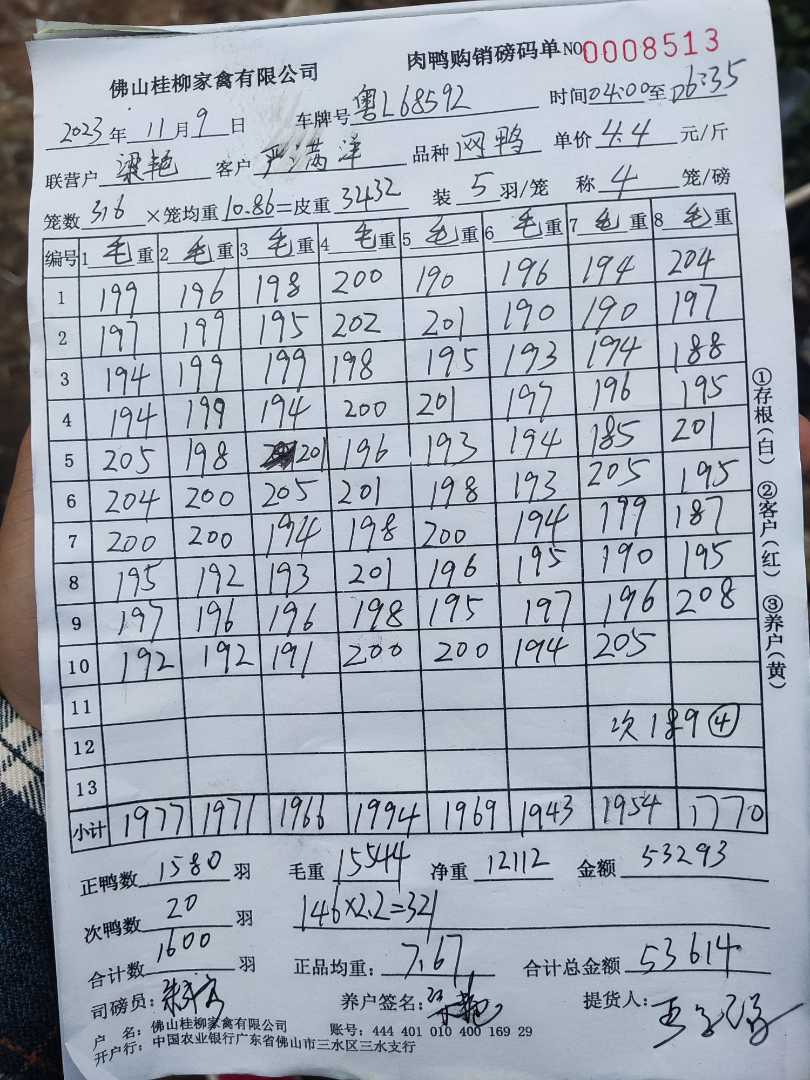 佛山桂柳家禽有限公司 肉鸭购销磅码单 NO 0008513
2023年11月9日 车牌号粤L68592 时间04:00至06:35
联营户梁艳 客户严满洋 品种网鸭 单价4.4元/斤
笼数316×笼均重10.86=皮重3432 装5羽/笼 称4笼/磅
编号 1毛重 2毛重 3毛重 4毛重 5毛重 6毛重 7毛重 8毛重
1 199 196 198 200 190 196 194 204
2 197 199 195 202 201 190 190 197
3 194 199 199 198 195 193 194 188
4 194 199 194 200 201 197 196 195
5 205 198 201 196 193 194 185 201
6 204 200 205 201 198 193 205 195
7 200 200 194 198 200 194 199 187
8 195 192 193 201 196 195 190 195
9 197 196 196 198 195 197 196 208
10 192 192 191 200 200 194 205
11
12 次189④
13
小计 1977 1971 1966 1994 1969 1943 1954 1770
①存根(白) ②客户(红) ③养户(黄)
正鸭数1580羽 毛重15544 净重12112 金额53293
次鸭数20羽 146×2.2=321
合计数1600羽 正品均重:7.67 合计总金额53614
司磅员: 养户签名:梁艳 提货人:
户 名:佛山桂柳家禽有限公司 账号:444 401 010 400 169 29
开户行:中国农业银行广东省佛山市三水区三水支行